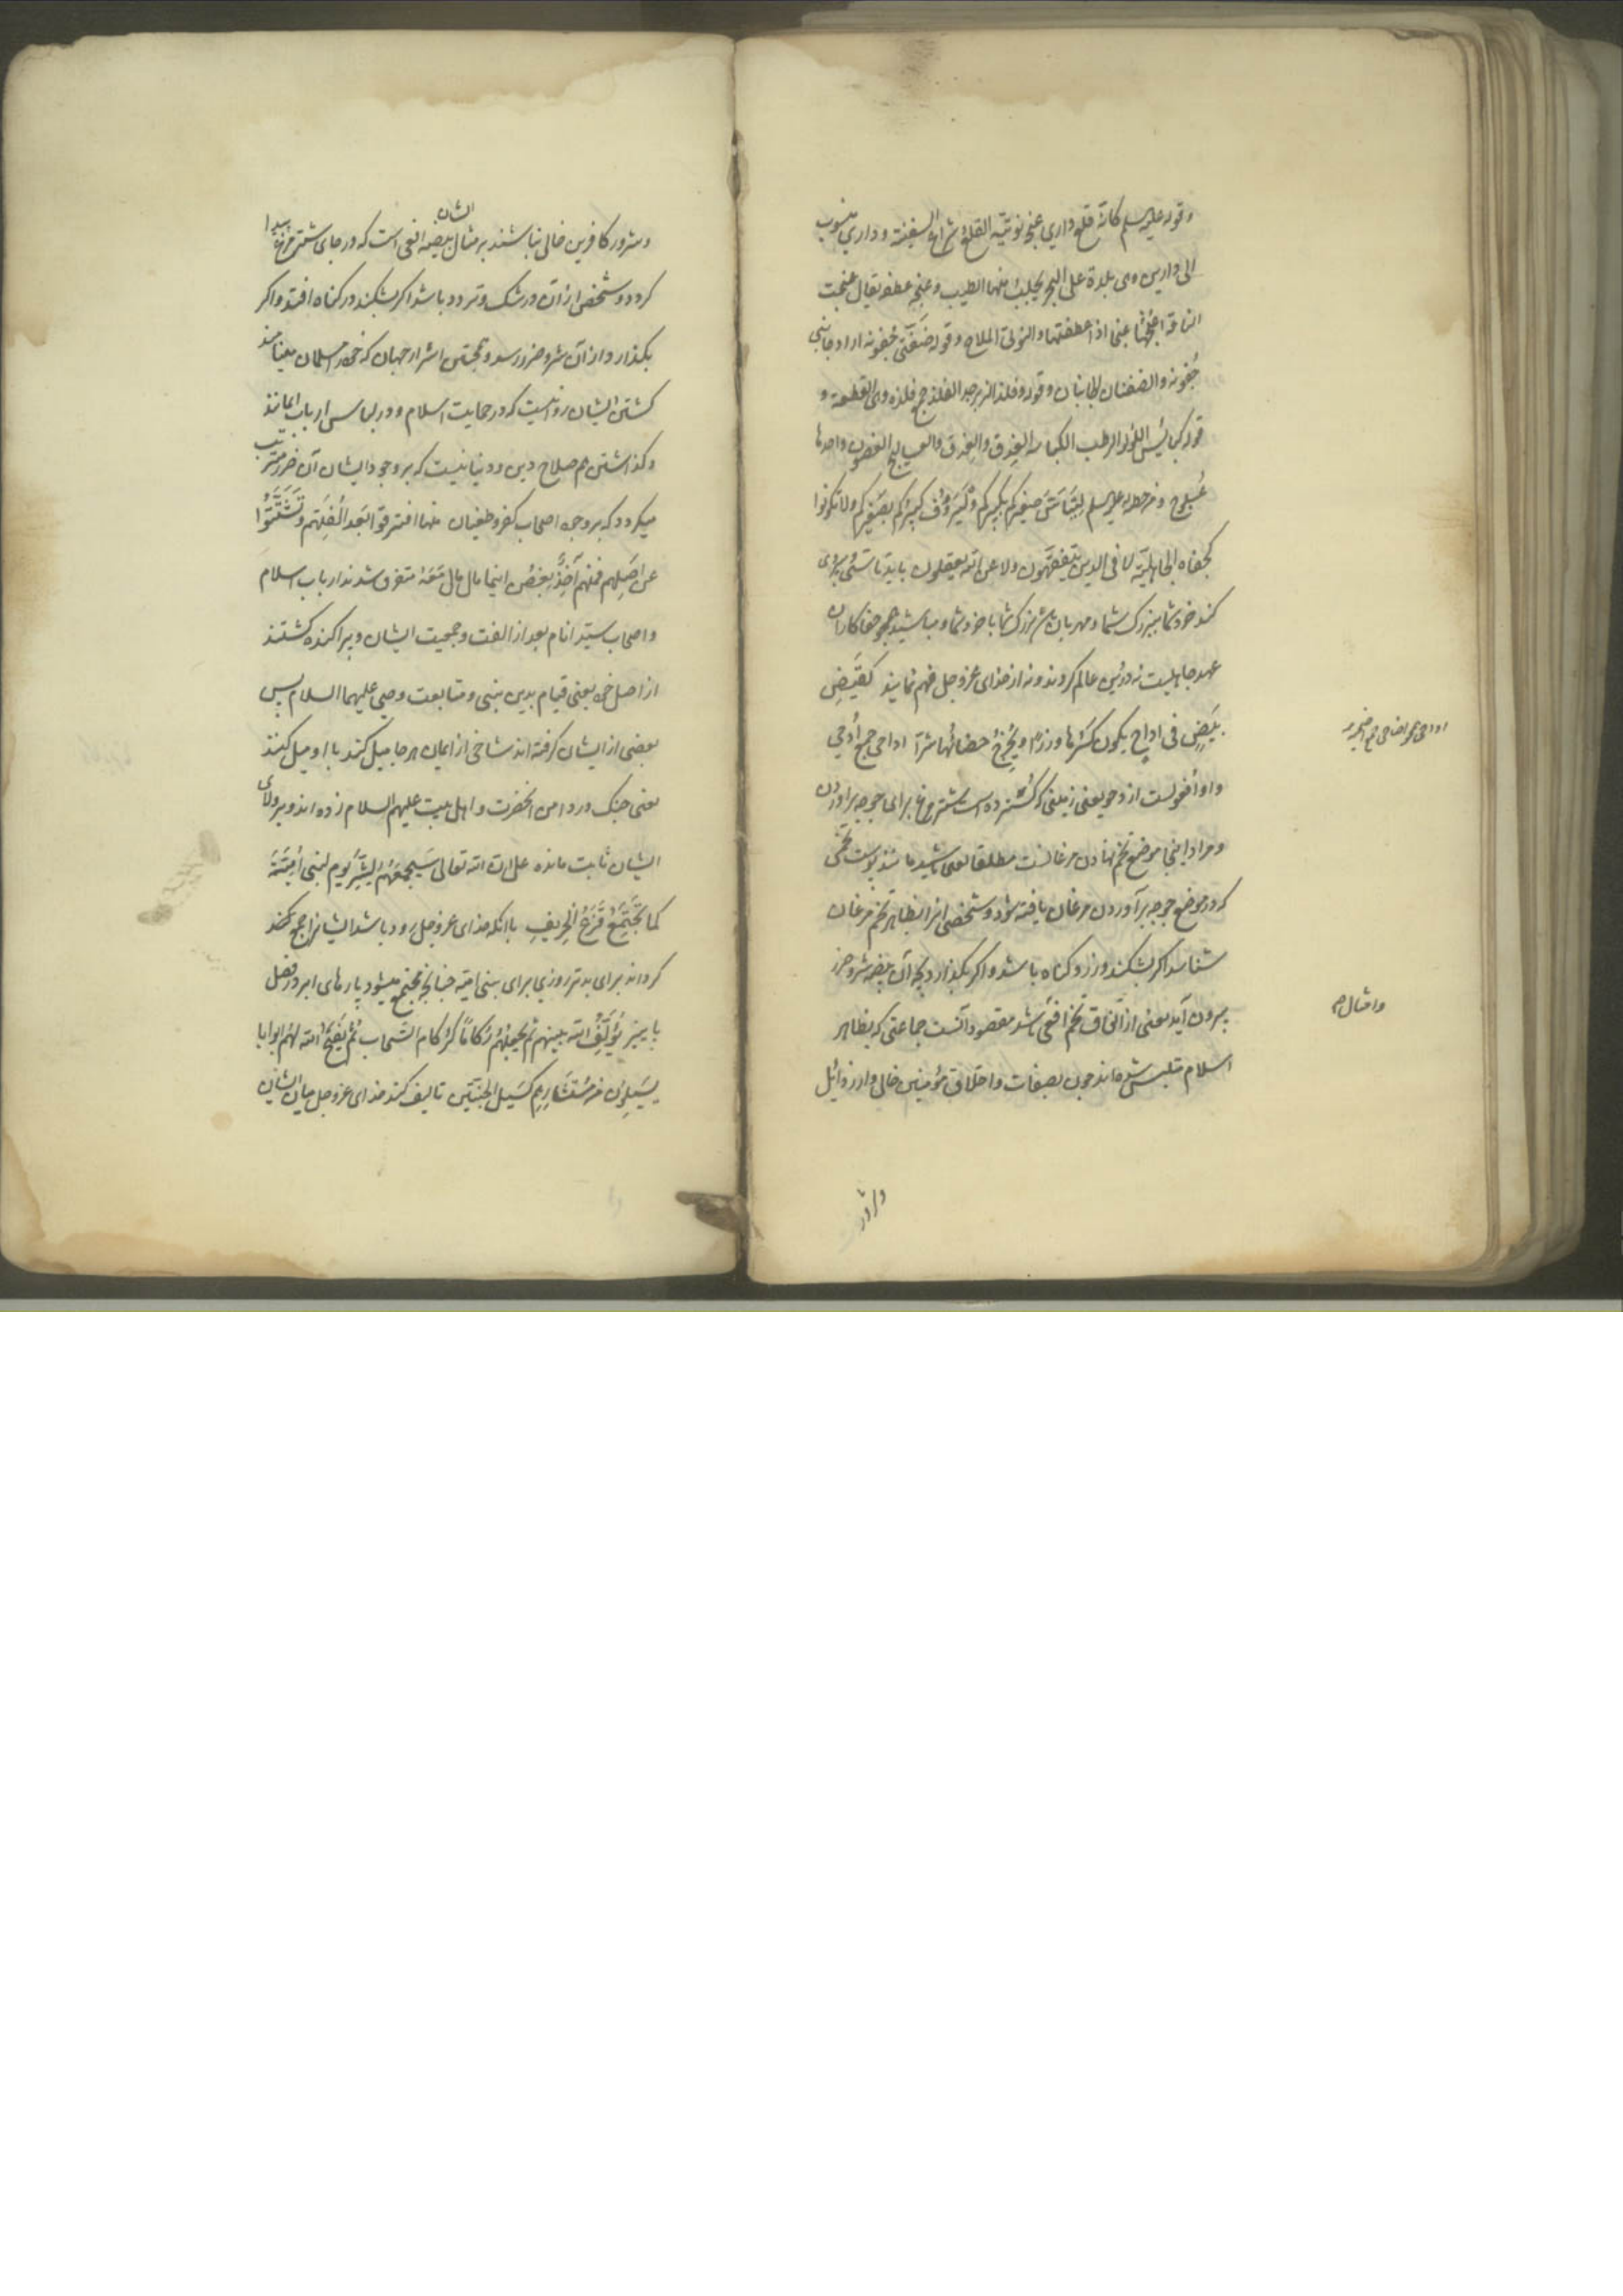 وقوله علیه‌السلم کانّه قلع داري عنجه نوتیّه القلع شراع السفینة وداري منسوب
الی دارین وهی بلدة علی البحر یجلب منها الطیب وعنجه عطفه یقال عنجت
الناقة اعنجها عنجا اذا عطفتها والنوتی الملاح وقوله ضفتی جفونه اراد جانبی
جفونه والضفتان الجانبان وقوله وفلذ الزبرجد الفلذ جمع فلذه وهی القطعة و
قوله کبائس اللؤلؤ الرطب الکباسه العذق والعذق والعسالیج الغصون واحدها
عُسلوج ومن خطبه له علیه‌السلم لِیَتَأَسَّ صغیرکم بکبیرکم ولْیَرؤُف کبیرکم بصغیرکم ولا تکونوا
کجفاه الجاهلیّة لا فی الدین یتفقّهون ولا عن الله یعقلون باید تا سّی و پیروی
کند خرد شما ببزرک شما و مهربان باشد بزرک شما با خرد شما و مباشید همچو جفاکاران
عهد جاهلیت نه در دین عالم کردند و نه از خدای عزوجل فهم نمایند کقَیضِ
بَیضٍ فی اداحٍ یکون کَسْرُها وِزرًا ویُخرِجُ حضانُها شرّا اداحی جمع اُدحی
واو افعولست از دحو یعنی زمینی که کسترده است شترمرغ برای جوجه برآوردن
و مراد اینجا موضع تخم نهادن مرغانست مطلقا یعنی مباشید مانند پوست تخمی
که در موضع جوجه برآوردن مرغان یافته شود و شخصی انرا بظاهر تخم مرغان
شناسد اکر بشکند وزر و کناه باشد و اکر بکذارد بچه آن بیضه شر و ضرر
بیرون آید یعنی از اتّفاق تخم افعی باشد مقصود آنست جماعتی که بظاهر
اسلام متلبس شده‌اند چون بصفات و اخلاق مؤمنین خالی و از رذائل
وامثال
وشرور
وشرور کافرین خالی نباشند بر مثال ایشان بیضه افعی است که در جای شترمرغ پیدا
کردد و شخص از آن در شک و تردد باشد اکر بشکند در کناه افتد و اکر
بکذارد از آن شر و ضرر رسد و همچنین اشرار جهان که خود را مسلمان مینامند
کشتن ایشان روا نیست که در حمایت اسلام و در لباس ارباب ایمانند
و کذاشتن هم صلاح دین و دنیا نیست که بر وجود ایشان آن ضرر مترتّب
میکردد که بر وجود اصحاب کفر و طغیان منها افترقوا بَعدَ اُلْفَتِهِم وتَشَتَّتُوا
عن اَصلِهم فمنهم آخِذٌ بغصنٍ اینما مال مال مَعَهُ متفرق شدند ارباب اسلام
و اصحاب سیّد انام بعد از الفت و جمعیت ایشان و پراکنده کشتند
از اصل خود یعنی قیام بدین نبی و متابعت وصی علیهما السلام پس
بعضی از ایشان کرفته‌اند شاخی از ایمان هر جا میل کند با او میل کنند
یعنی چنک در دامن انحضرت و اهل بیت علیهم السلام زده‌اند و بر ولای
ایشان ثابت مانده علی ان الله تعالی سَیجمعُهُم لِشَرِّ یوم لبنی اُمَیّةَ
کما تَجتَمِعُ قَزَعُ الخریفِ با انکه خدای عزوجل زود باشد ایشانرا جمع کند
کرداند برای بدتر روزی برای بنی امیّه چنانچه مجتمع میشود پارهای ابر در فصل
پاییز یُؤَلِّفُ الله بینهم ثم یجعلُهُم رُکامًا کرُکام السَّحاب ثُمَّ یَفتَحُ الله لهُم ابوابا
یَسیلون مِن مُستَثارِهِم کسَیل الجنّتَین تالیف کند خدای عزوجل میان ایشان